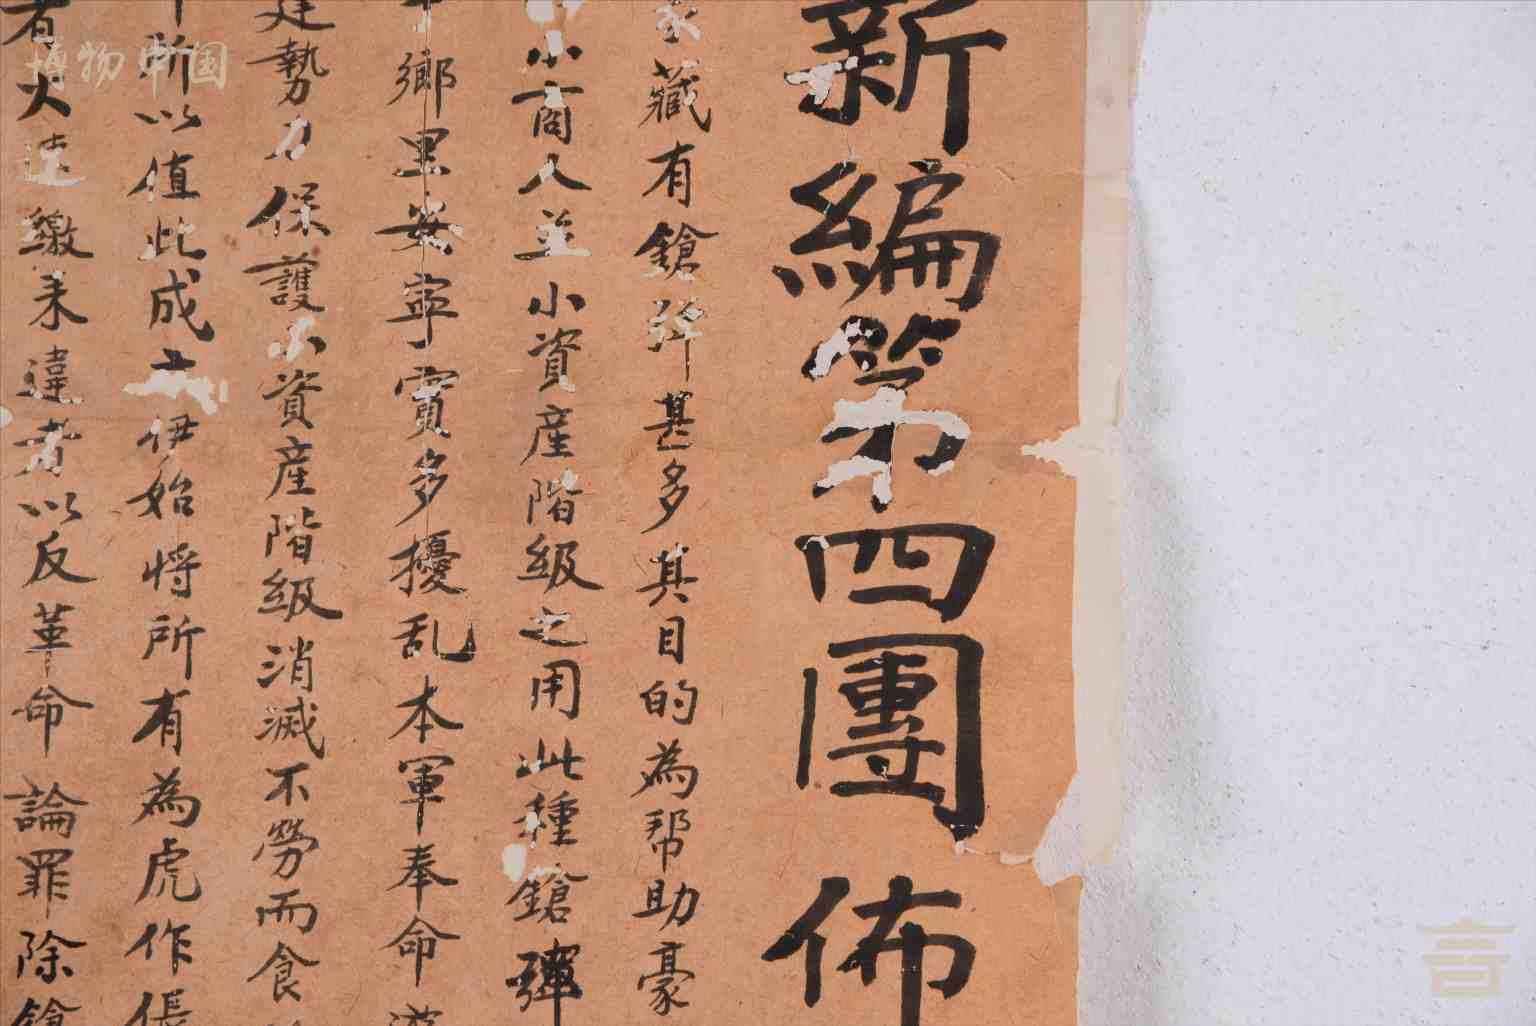 新編第四團佈
家藏有鎗彈甚多其目的為帮助豪
小商人並小資産階級之用此種鎗彈
鄉里安寧實多擾乱本軍奉命
建勢力保護小資産階級消滅不勞而食
所以值此成立伊始将所有為虎作倀
者火速繳来違者以反革命論罪除鎗
博物中国
言